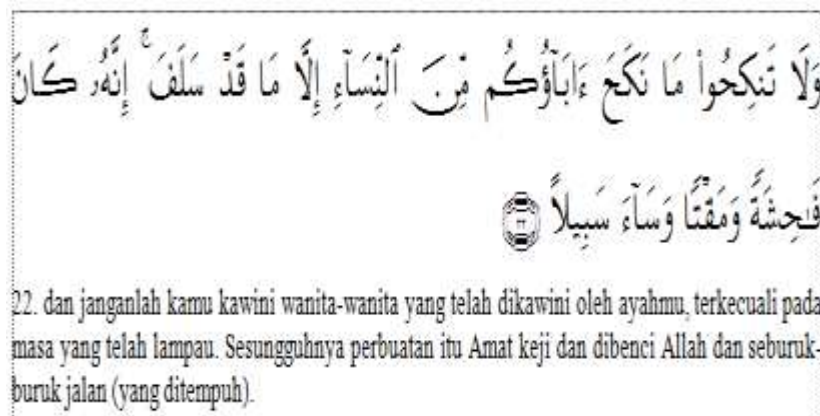 وَلَا تَنكِحُوا۟ مَا نَكَحَ ءَابَآؤُكُم مِّنَ ٱلنِّسَآءِ إِلَّا مَا قَدْ سَلَفَ ۚ إِنَّهُۥ كَانَ
فَـٰحِشَةً وَمَقْتًا وَسَآءَ سَبِيلاً ٢٢
22. dan janganlah kamu kawini wanita-wanita yang telah dikawini oleh ayahmu, terkecuali pada
masa yang telah lampau. Sesungguhnya perbuatan itu Amat keji dan dibenci Allah dan seburuk-
buruk jalan (yang ditempuh).